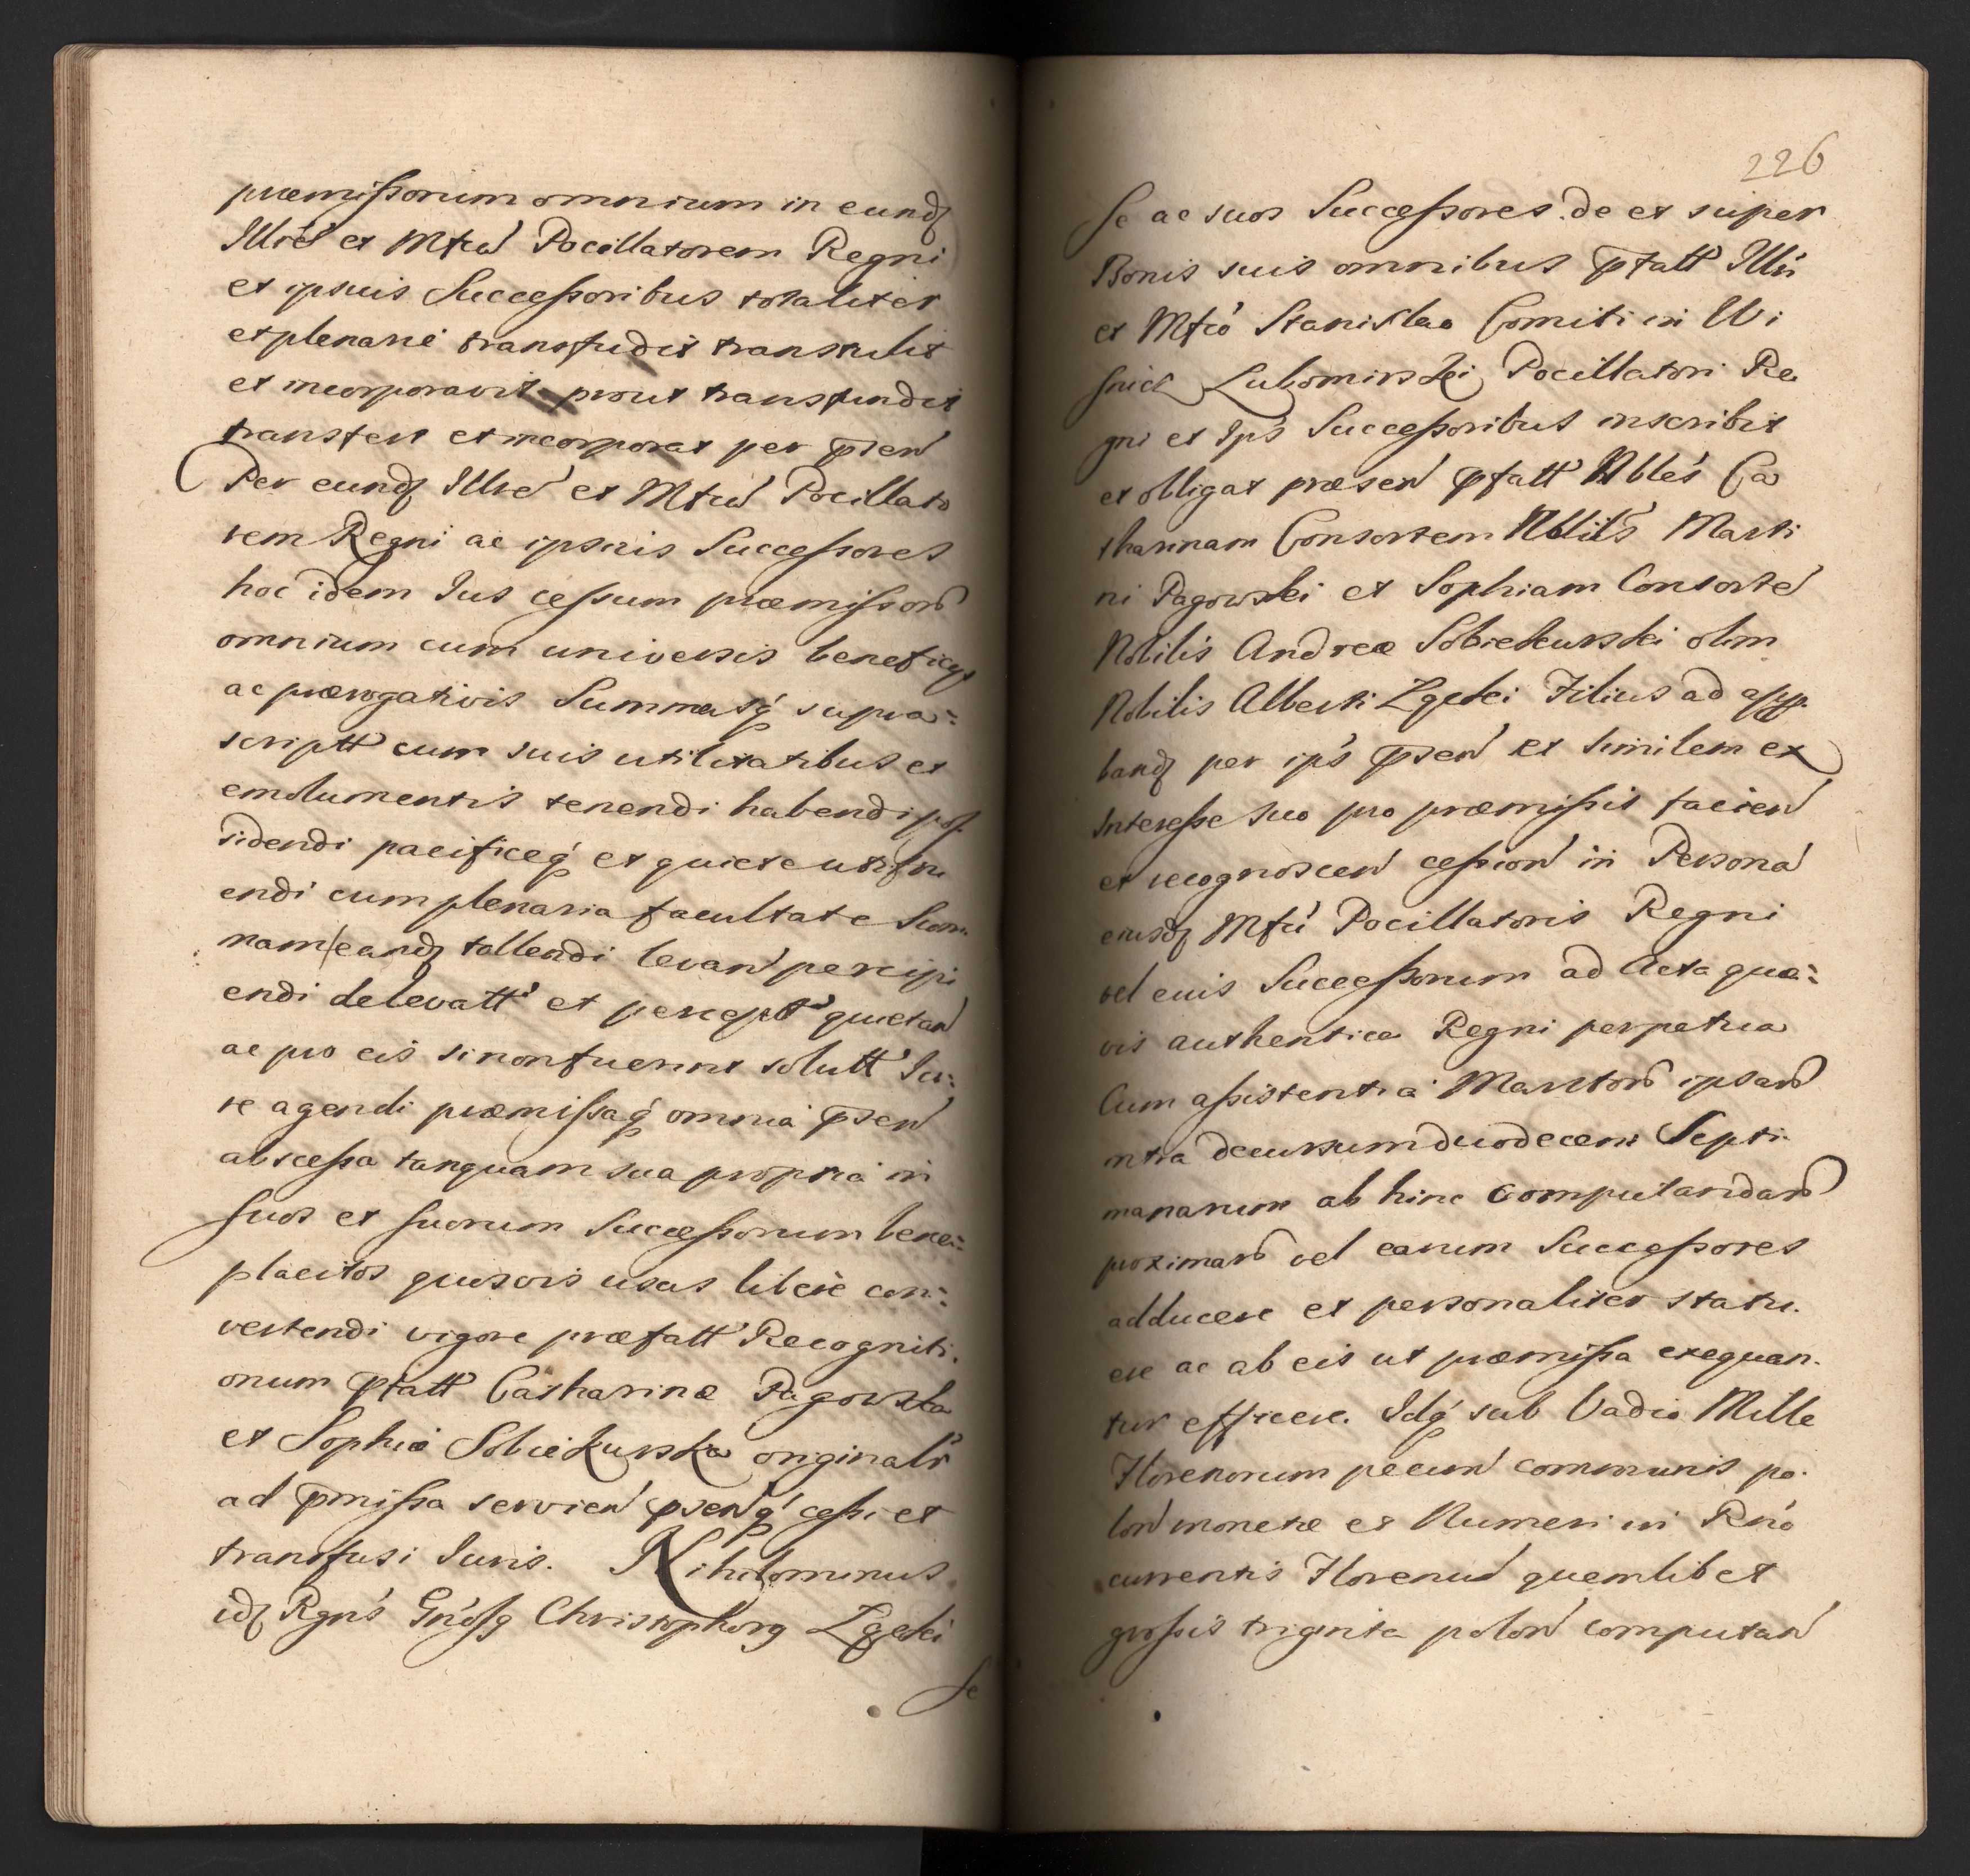 præmissorum omnium in eundꝫ
Illrē et Mfcū Pocillatorem Regni
et ipsius Successoribus totaliter
et plenarie transfudit transtulit
et incorporavit prout transfundit
transfert et incorporat per p̄sen̄
Per eundꝫ Illrē et Mfcū Pocillato
rem Regni ac ipsius Successores
hoc idem Ius cessum præmissorͫ
omnium cum universis beneficys
ac prærogativis Summasq́ supra=
scriptt cum suis utilitatibus et
emolumentis tenendi habendi pos
sidendi pacificeq́ et quiete utifru
endi cum plenaria facultate Sum
nam eandꝫ tollendi levan̄ percipi
endi de levatt et percept quietan̄
ac pro eis si non fuerint solutt Iu=
re agendi præmissaq́ omnia p̄sen̄
abscessa tanquam sua propria in
suos et suorum Successorum bene=
placitos quosvis usus libere con=
vertendi vigore præfatt Recogniti.
onum p̄fatt Catharinæ Pagowska
et Sophiæ Sobiekurska originalr̄
ad p̄missa servien̄ p̄senq́ cessi et
transfusi Iuris. Nihilominus
idꝫ Rgn̄s Gn̄osꝫ Christophorꝫ Zgelei
Se
226
Se ac suos Successores de et super
Bonis suis omnibus p̄fatt Illri
et Mfcō Stanislao Comiti in Wi
snicz Lubomirskei Pocillatori Re
gni et Ips̄ Successoribus inscribit
et obligat præsen̄ p̄fatt Nbles Ca
tharinam Consortem Nblis̄ Marti
ni Pagowskei et Sophiam Consortē
Nobilis Andreæ Sobiekurskei olim
Nobilis Alberti Zgelei Filius ad app
bandꝫ per ips̄ p̄sen̄ et similem ex
Interesse suo pro præmissis facien̄
et recognoscen̄ cession̄ in Persona
eiusdꝫ Mfci Pocillatoris Regni
vel eius Successorum ad Acta quæ=
vis authentica Regni perpetua
Cum assistentia Maritorͫ ipsarͫ
intra decursum duodecem Septi
manarum ab hinc computandarͫ
proximarͫ vel earum Successores
adducere et personaliter statu.
ere ac ab eis ut præmissa exequan.
tur efficere. Idq́ sub Vadio Mille
Florenorum pecun̄ communis po.
lon̄ monetæ et Numeri in Rn̄o
currentis Florenū quemlibet
grossis triginta polon̄ computan̄